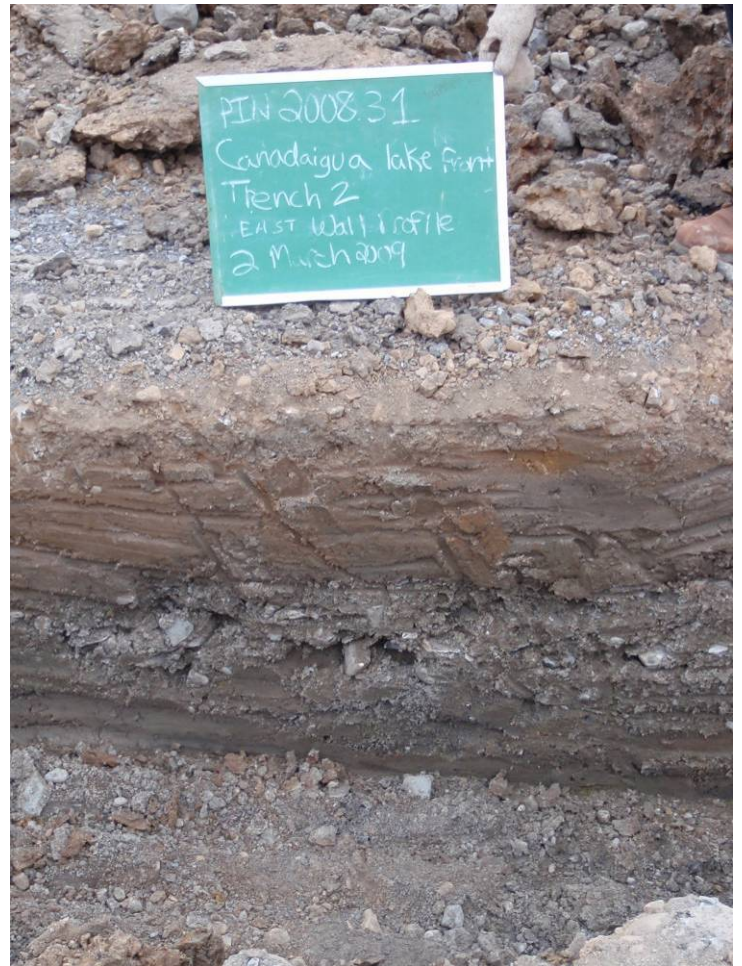 PIN 2008.31
Canadaigua lake front
Trench 2
EAST Wall Profile
2 March 2009